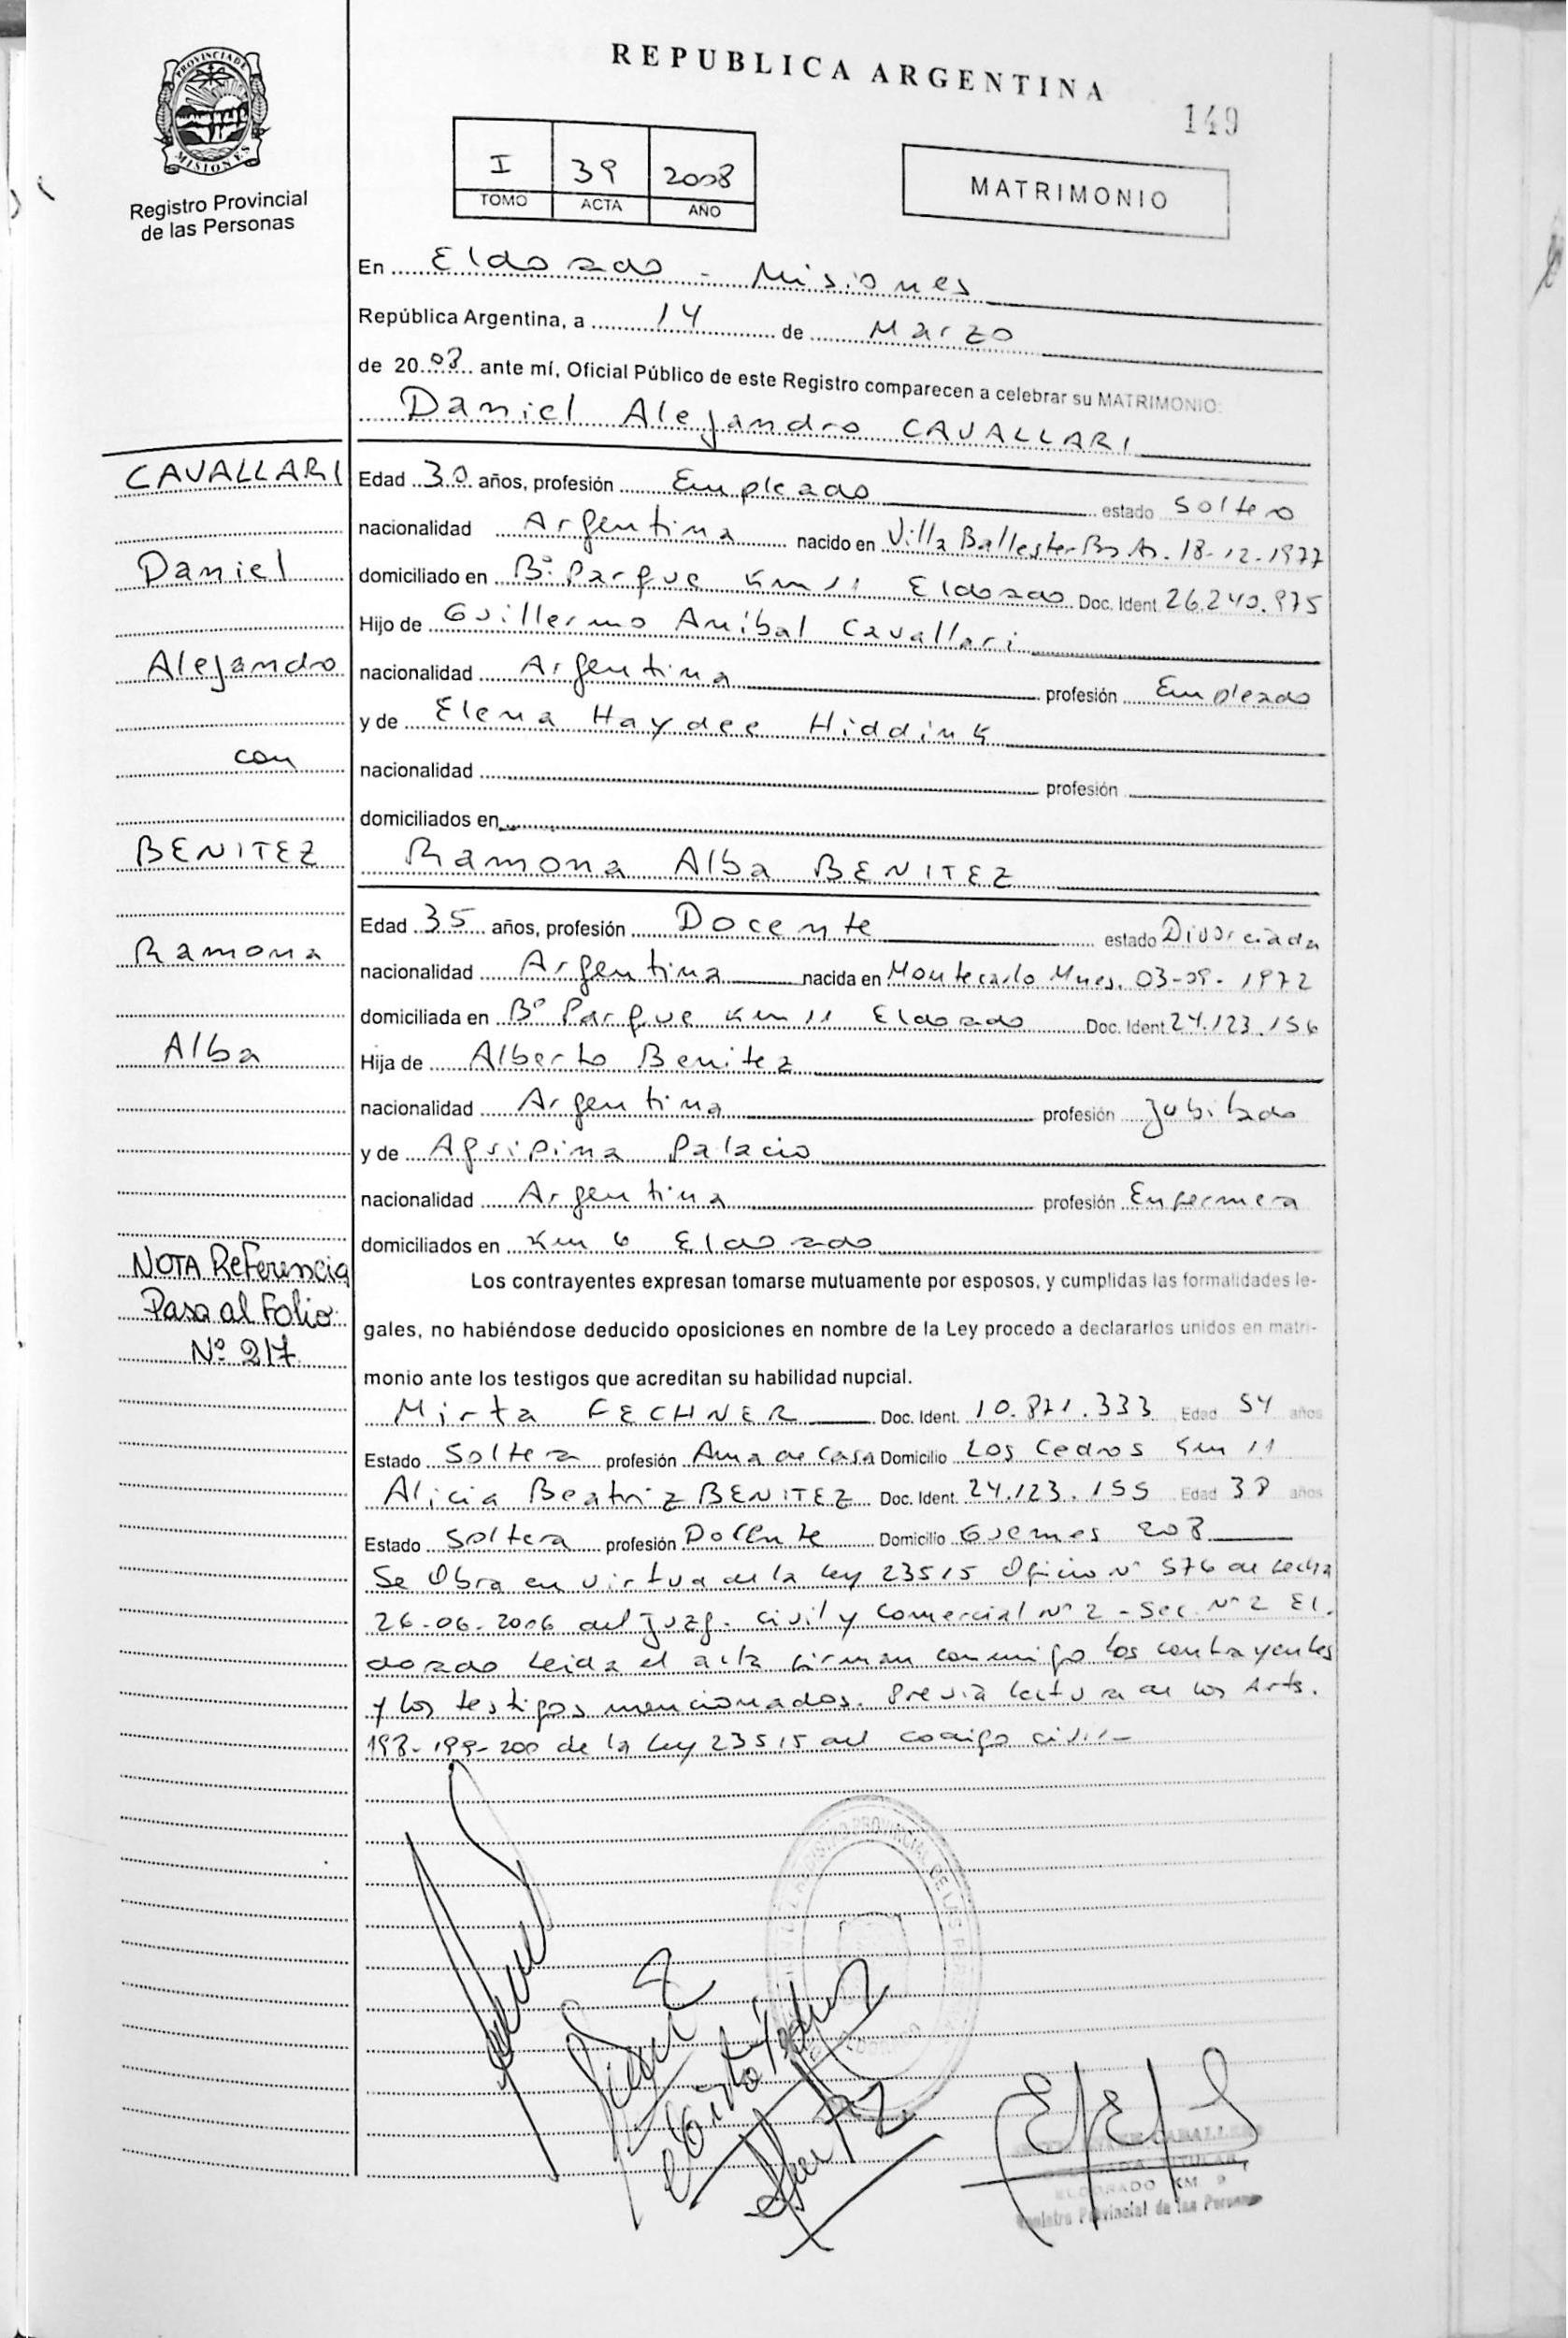 REPUBLICA ARGENTINA
149
PROVINCIA DE
MISIONES
Registro Provincial
de las Personas
I 39 2008
TOMO ACTA AÑO
MATRIMONIO
En Eldorado - Misiones
República Argentina, a 14 de Marzo
de 2008 ante mí, Oficial Público de este Registro comparecen a celebrar su MATRIMONIO:
Daniel Alejandro CAVALLARI
CAVALLARI
Daniel
Alejandro
con
BENITEZ
Ramona
Alba
NOTA Referencia
Pasa al Folio
Nº 217
Edad 30 años, profesión Empleado estado Soltero
nacionalidad Argentina nacido en Villa Ballester Bs As. 18-12-1977
domiciliado en Bº Parque Km 11 Eldorado Doc. Ident. 26.240.975
Hijo de Guillermo Anibal Cavallari
nacionalidad Argentina profesión Empleado
y de Elena Haydee Hiddink
nacionalidad profesión
domiciliados en
Ramona Alba BENITEZ
Edad 35 años, profesión Docente estado Divorciada
nacionalidad Argentina nacida en Montecarlo Mnes. 03-09-1972
domiciliada en Bº Parque Km 11 Eldorado Doc. Ident. 24.123.156
Hija de Alberto Benitez
nacionalidad Argentina profesión Jubilado
y de Agripina Palacio
nacionalidad Argentina profesión Enfermera
domiciliados en Km 6 Eldorado
Los contrayentes expresan tomarse mutuamente por esposos, y cumplidas las formalidades le-
gales, no habiéndose deducido oposiciones en nombre de la Ley procedo a declararlos unidos en matri-
monio ante los testigos que acreditan su habilidad nupcial.
Mirta FECHNER Doc. Ident. 10.871.333 Edad 54 años
Estado Soltera profesión Ama de Casa Domicilio Los Cedros Km 11
Alicia Beatriz BENITEZ Doc. Ident. 24.123.155 Edad 38 años
Estado Soltera profesión Docente Domicilio Guemes 208
Se Obra en virtud de la ley 23515 Oficio Nº 576 de fecha
26-06-2006 del Juzg. Civil y Comercial Nº 2 - Sec. Nº 2 El-
dorado leida el acta firman conmigo los contrayentes
y los testigos mencionados. Previa lectura de los Arts.
198-199-200 de la ley 23515 del codigo civil-
CABALLERO
TITULAR
ELDORADO KM 9
Registro Provincial de las Personas